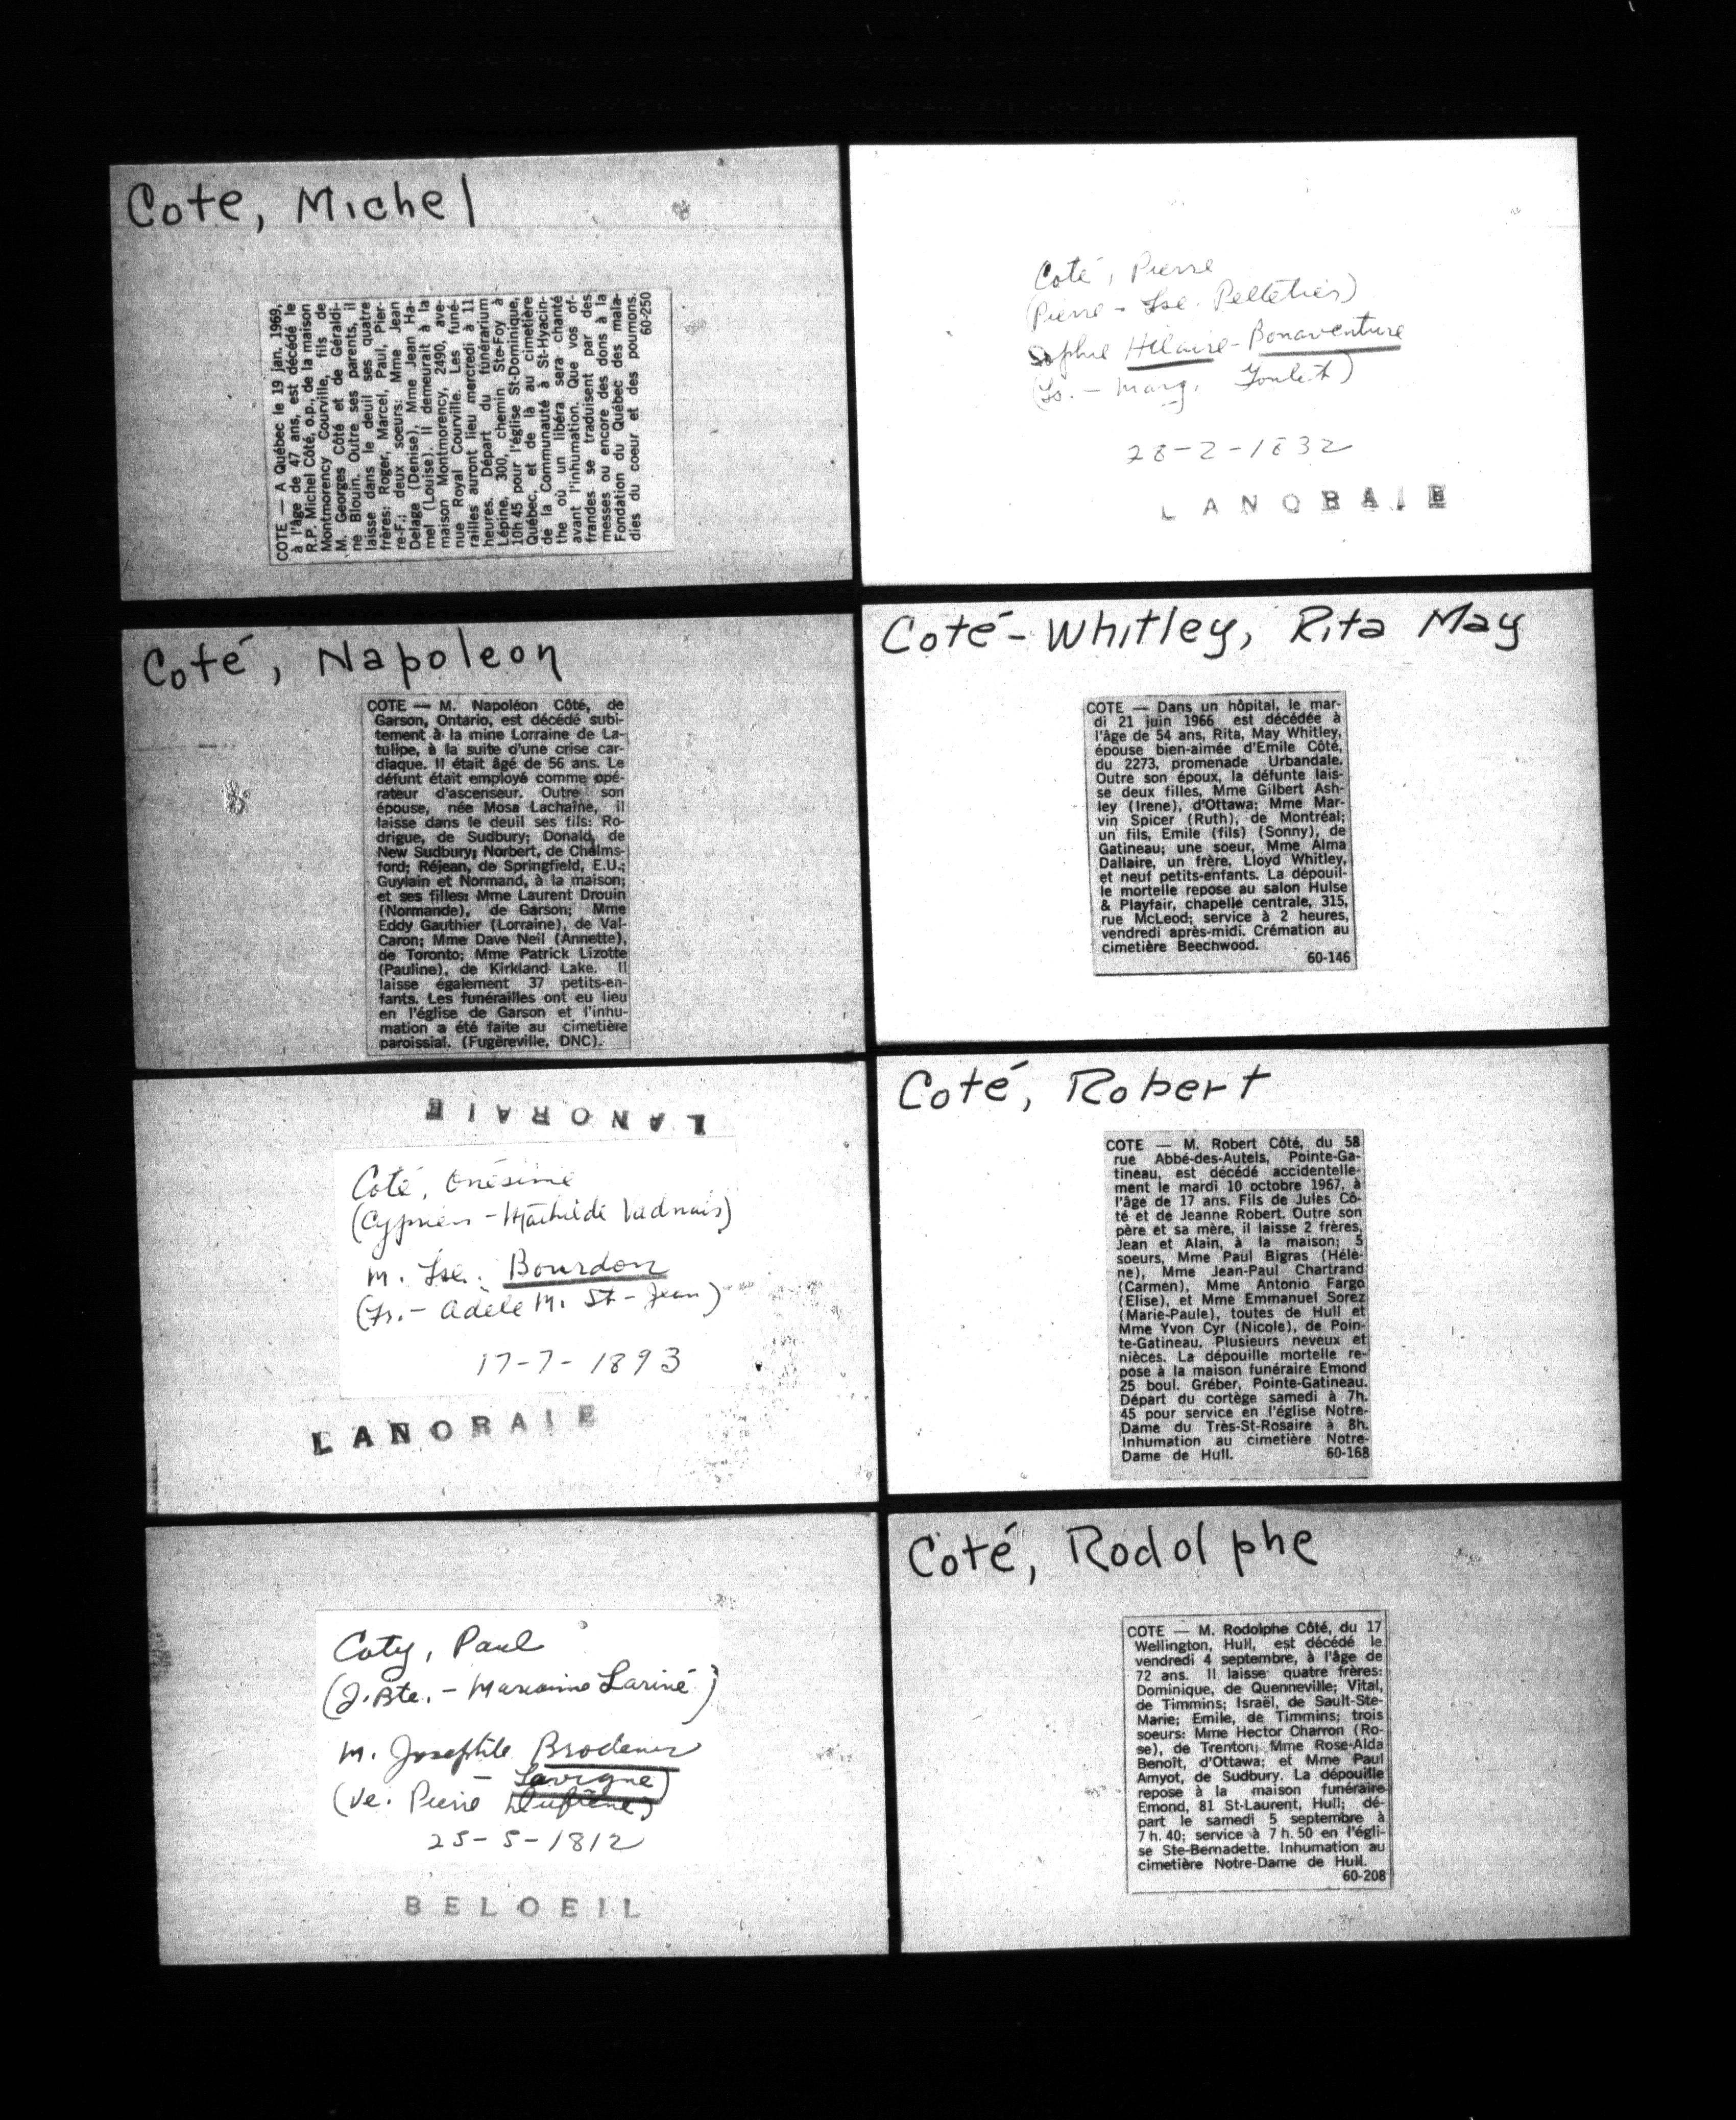 Cote, Michel
COTE — A Québec le 19 jan. 1969,
à l'âge de 47 ans, est décédé le
R.P. Michel Côté, o.p., de la maison
Montmorency Courville, fils de
M. Georges Côté et de Géraldi-
ne Blouin. Outre ses parents, il
laisse dans le deuil ses quatre
frères: Roger, Marcel, Paul, Pier-
re-F.; deux soeurs: Mme Jean
Delage (Denise), Mme Jean Ha-
mel (Louise). Il demeurait à la
maison Montmorency, 2490, ave-
nue Royal Courville. Les funé-
railles auront lieu mercredi à 11
heures. Départ du funérarium
Lépine, 300, chemin Ste-Foy à
10h 45 pour l'église St-Dominique,
Québec, et de là au cimetière
de la Communauté à St-Hyacin-
the où un libéra sera chanté
avant l'inhumation. Que vos of-
frandes se traduisent par des
messes ou encore des dons à la
Fondation du Québec des mala-
dies du coeur et des poumons.
60-250
Coté, Napoleon
COTE — M. Napoléon Côté, de
Garson, Ontario, est décédé subi-
tement à la mine Lorraine de La-
tulipe, à la suite d'une crise car-
diaque. Il était âgé de 56 ans. Le
défunt était employé comme opé-
rateur d'ascenseur. Outre son
épouse, née Mosa Lachaîne, il
laisse dans le deuil ses fils: Ro-
drigue, de Sudbury; Donald, de
New Sudbury; Norbert, de Chelms-
ford; Réjean, de Springfield, E.U.;
Guylain et Normand, à la maison;
et ses filles: Mme Laurent Drouin
(Normande), de Garson; Mme
Eddy Gauthier (Lorraine), de Val-
Caron; Mme Dave Neil (Annette),
de Toronto; Mme Patrick Lizotte
(Pauline), de Kirkland Lake. Il
laisse également 37 petits-en-
fants. Les funérailles ont eu lieu
en l'église de Garson et l'inhu-
mation a été faite au cimetière
paroissial. (Fugèreville, DNC).
LANORAIE
Coté, Onésime
(Cyprien - Mathilde Vadnais)
m. Jse. Bourdon
(Fs. - Adèle M. St-Jean)
17-7-1893
LANORAIE
Coty, Paul
(J.Bte. - Marianne Lariné)
m. Josephte Brodeur
- Lavigne)
(ve. Pierre Dufresne)
25-5-1812
BELOEIL
Coté, Pierre
(Pierre - Jse. Pelletier)
Sophie Hilaire-Bonaventure
(Fs. - Marg.
28-2-1832
LANORAIE
Coté-Whitley, Rita May
COTE — Dans un hôpital, le mar-
di 21 juin 1966 est décédée à
l'âge de 54 ans, Rita, May Whitley,
épouse bien-aimée d'Emile Côté,
du 2273, promenade Urbandale.
Outre son époux, la défunte lais-
se deux filles, Mme Gilbert Ash-
ley (Irene), d'Ottawa; Mme Mar-
vin Spicer (Ruth), de Montréal;
un fils, Emile (fils) (Sonny), de
Gatineau; une soeur, Mme Alma
Dallaire, un frère, Lloyd Whitley,
et neuf petits-enfants. La dépouil-
le mortelle repose au salon Hulse
& Playfair, chapelle centrale, 315,
rue McLeod; service à 2 heures,
vendredi après-midi. Crémation au
cimetière Beechwood.
60-146
Coté, Robert
COTE — M. Robert Côté, du 58
rue Abbé-des-Autels, Pointe-Ga-
tineau, est décédé accidentelle-
ment le mardi 10 octobre 1967, à
l'âge de 17 ans. Fils de Jules Cô-
té et de Jeanne Robert. Outre son
père et sa mère, il laisse 2 frères,
Jean et Alain, à la maison; 5
soeurs, Mme Paul Bigras (Hélè-
ne), Mme Jean-Paul Chartrand
(Carmen), Mme Antonio Fargo
(Elise), et Mme Emmanuel Sorez
(Marie-Paule), toutes de Hull et
Mme Yvon Cyr (Nicole), de Poin-
te-Gatineau. Plusieurs neveux et
nièces. La dépouille mortelle re-
pose à la maison funéraire Emond
25 boul. Gréber, Pointe-Gatineau.
Départ du cortège samedi à 7h.
45 pour service en l'église Notre-
Dame du Très-St-Rosaire à 8h.
Inhumation au cimetière Notre-
Dame de Hull. 60-168
Coté, Rodolphe
COTE — M. Rodolphe Côté, du 17
Wellington, Hull, est décédé le
vendredi 4 septembre, à l'âge de
72 ans. Il laisse quatre frères:
Dominique, de Quenneville; Vital,
de Timmins; Israël, de Sault-Ste-
Marie; Emile, de Timmins; trois
soeurs: Mme Hector Charron (Ro-
se), de Trenton; Mme Rose-Alda
Benoît, d'Ottawa; et Mme Paul
Amyot, de Sudbury. La dépouille
repose à la maison funéraire
Emond, 81 St-Laurent, Hull; dé-
part le samedi 5 septembre à
7 h. 40; service à 7 h. 50 en l'égli-
se Ste-Bernadette. Inhumation au
cimetière Notre-Dame de Hull.
60-208